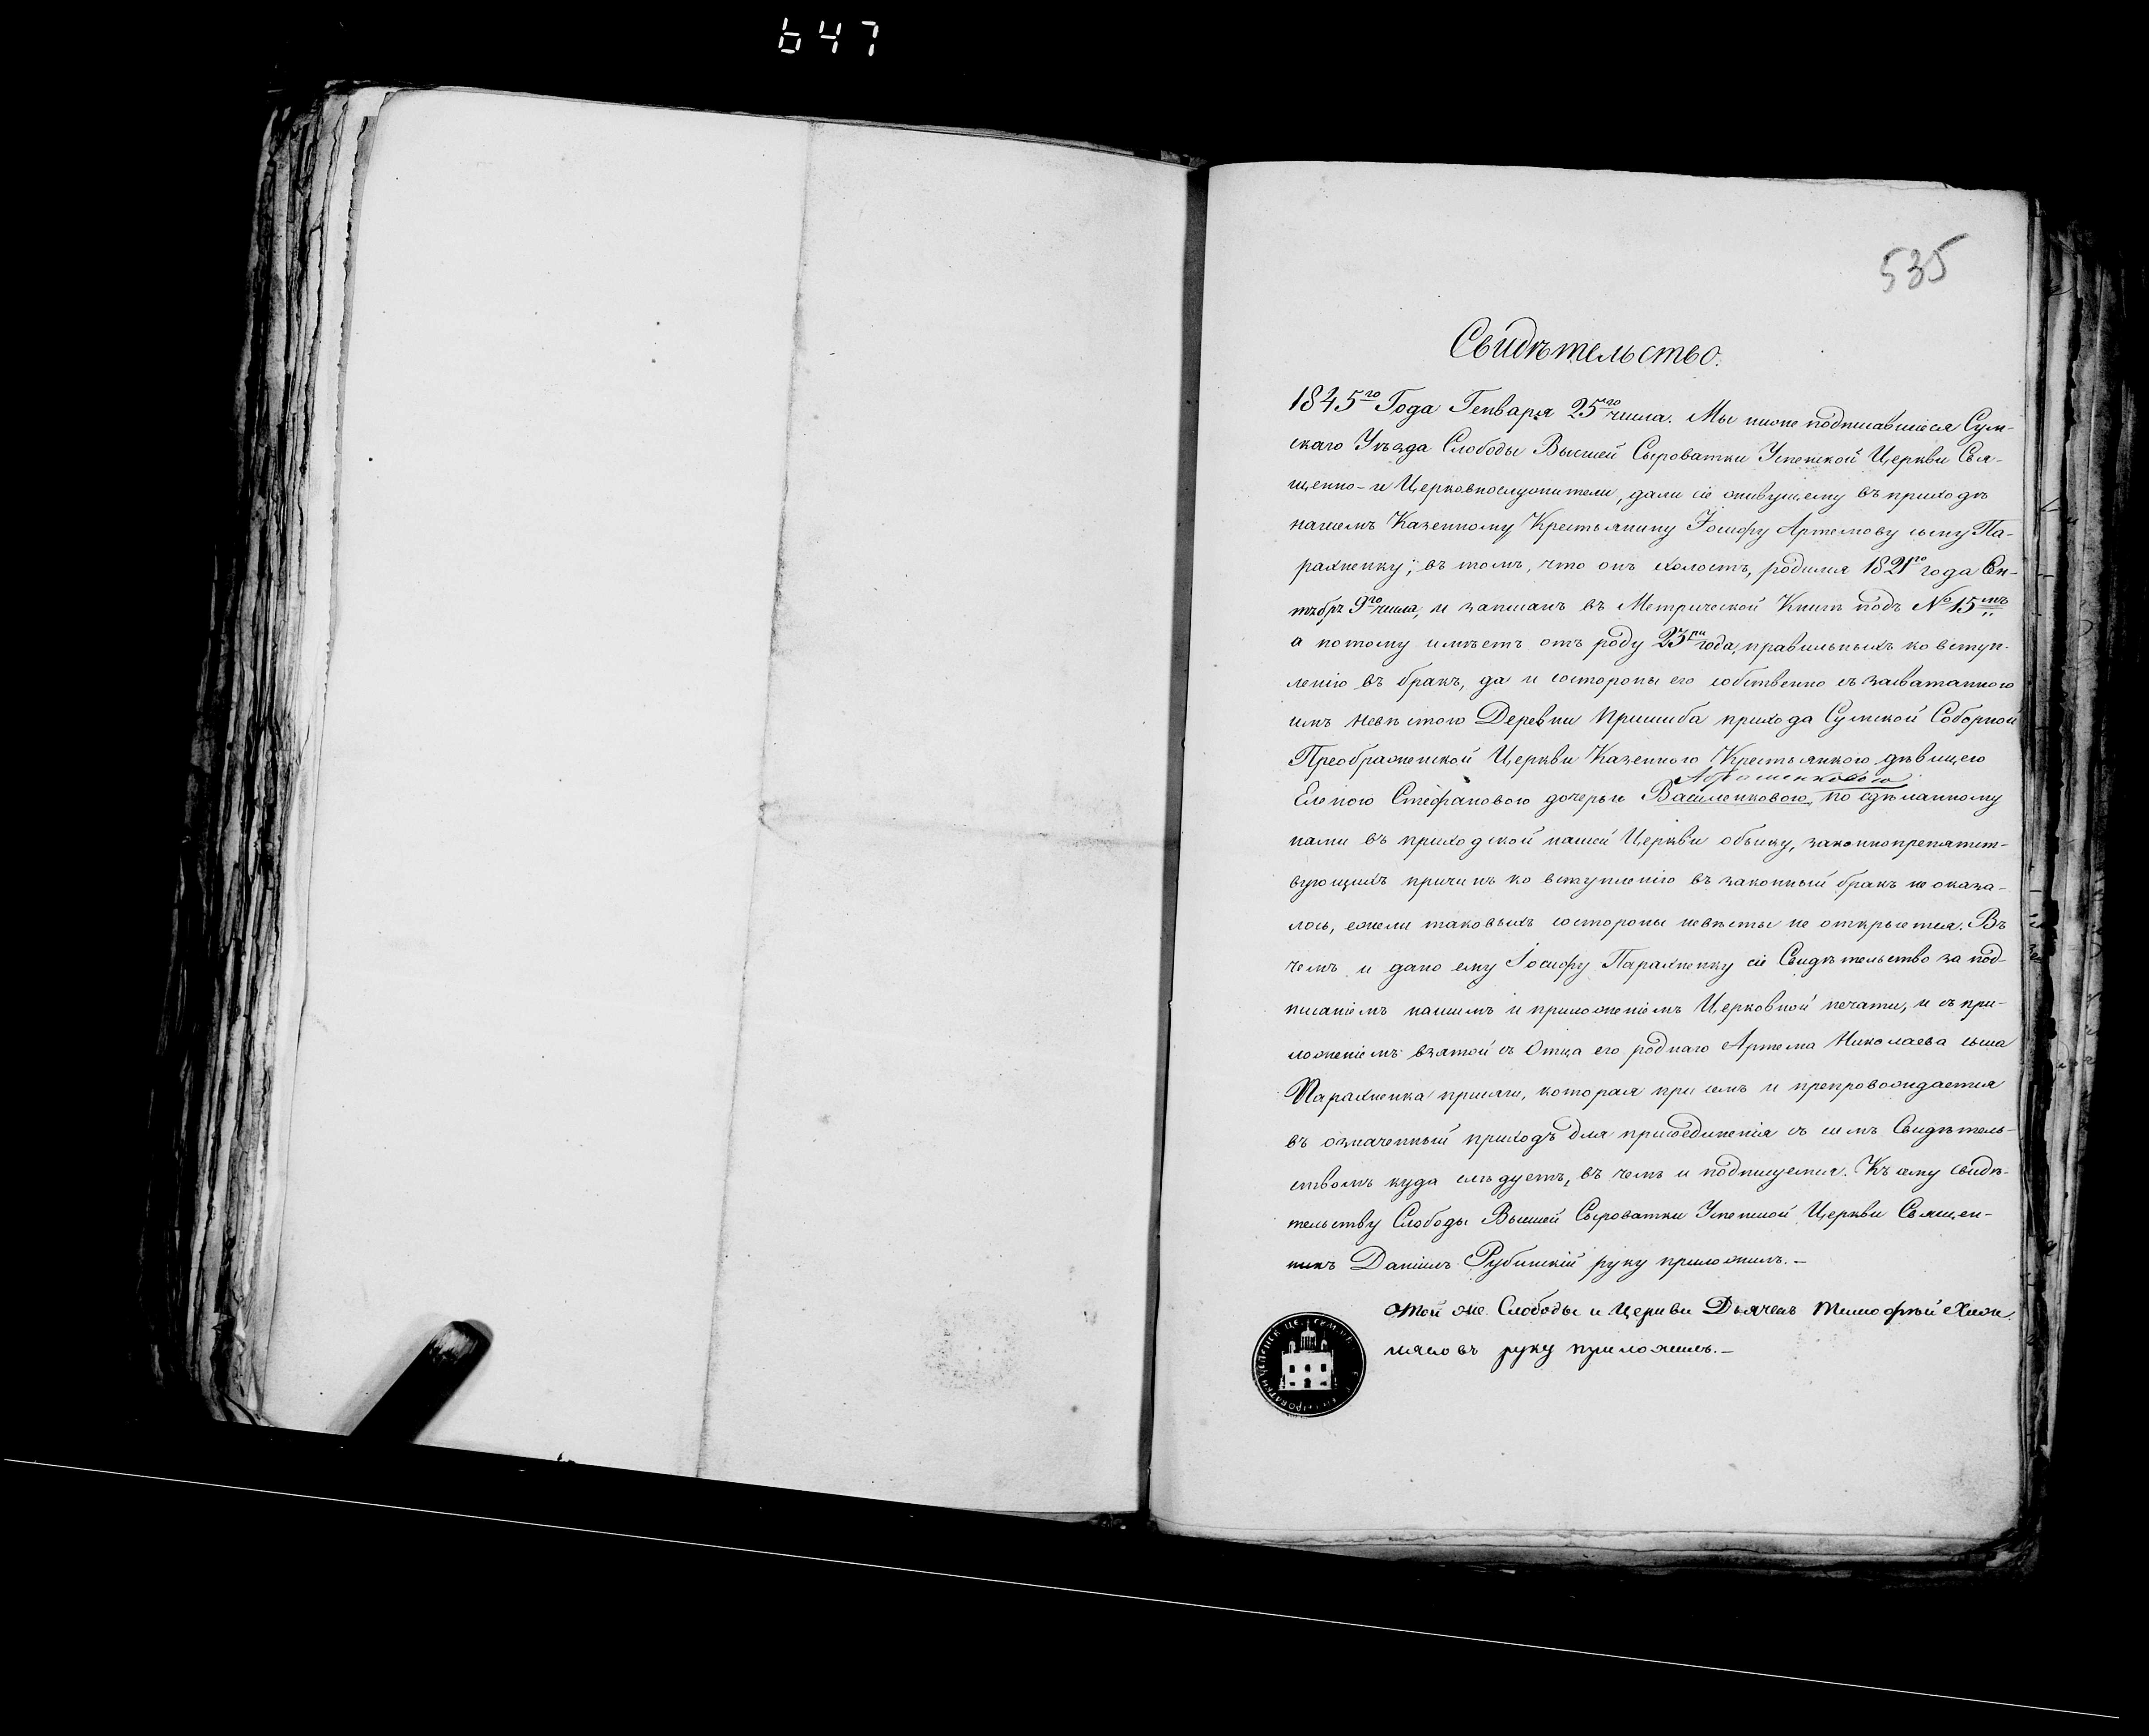 647
535
Свидѣтельство.
1845го Года Генваря 25го числа. Мы ниже подписавшіеся Сум-
скаго Уѣзда Слободы Высшей Сыроватки Успенской Церкви Свя-
щенно- и Церковнослужители, дали сіе живущему въ приходѣ
нашемъ Казенному Крестьянину Іосифу Артемову сыну Па-
рахненку; въ томъ, что онъ холостъ, родился 1821го года Ок-
тѣбрѣ 9го числа, и записанъ въ Метрической Книгѣ подъ № 15мъ
а потому имѣетъ отъ роду 23ри года, правильныхъ ко вступ-
ленію въ бракъ, да и состороны его собственно съ засватанною
имъ Невѣстою Деревни Пришиба прихода Сумской Соборной
Преображенской Церкви Казенною Крестьянкою дѣвицею
Еленою Стефановою дочерью Василенковою, по сдѣланному
нами въ приходской нашей Церкви обыску, законнопрепятст-
вующихъ причинъ ко вступленію въ законный бракъ не оказа-
лось, ежели таковыхъ состороны невѣсты не откроется. Въ
чемъ и дано ему Іосифу Парахненку сіе Свидѣтельство за под-
писаніемъ нашимъ и приложеніемъ Церковной печати, и съ при-
ложеніемъ взятой съ Отца его роднаго Артема Николаева сына
Парахненка присяги, которая при семъ и препровождается
въ означенный приходъ для присоединенія съ симъ Свидѣтель-
ствомъ куда слѣдуетъ, въ чемъ и подпишемся. Къ сему свидѣ-
тельству Слободы Высшей Сыроватки Успенской Церкви Священ-
никъ Даніилъ Рубинскій руку приложилъ.-
Отой же Слободы и Церкви Дьячекъ Тимофѣй
руку приложилъ.-